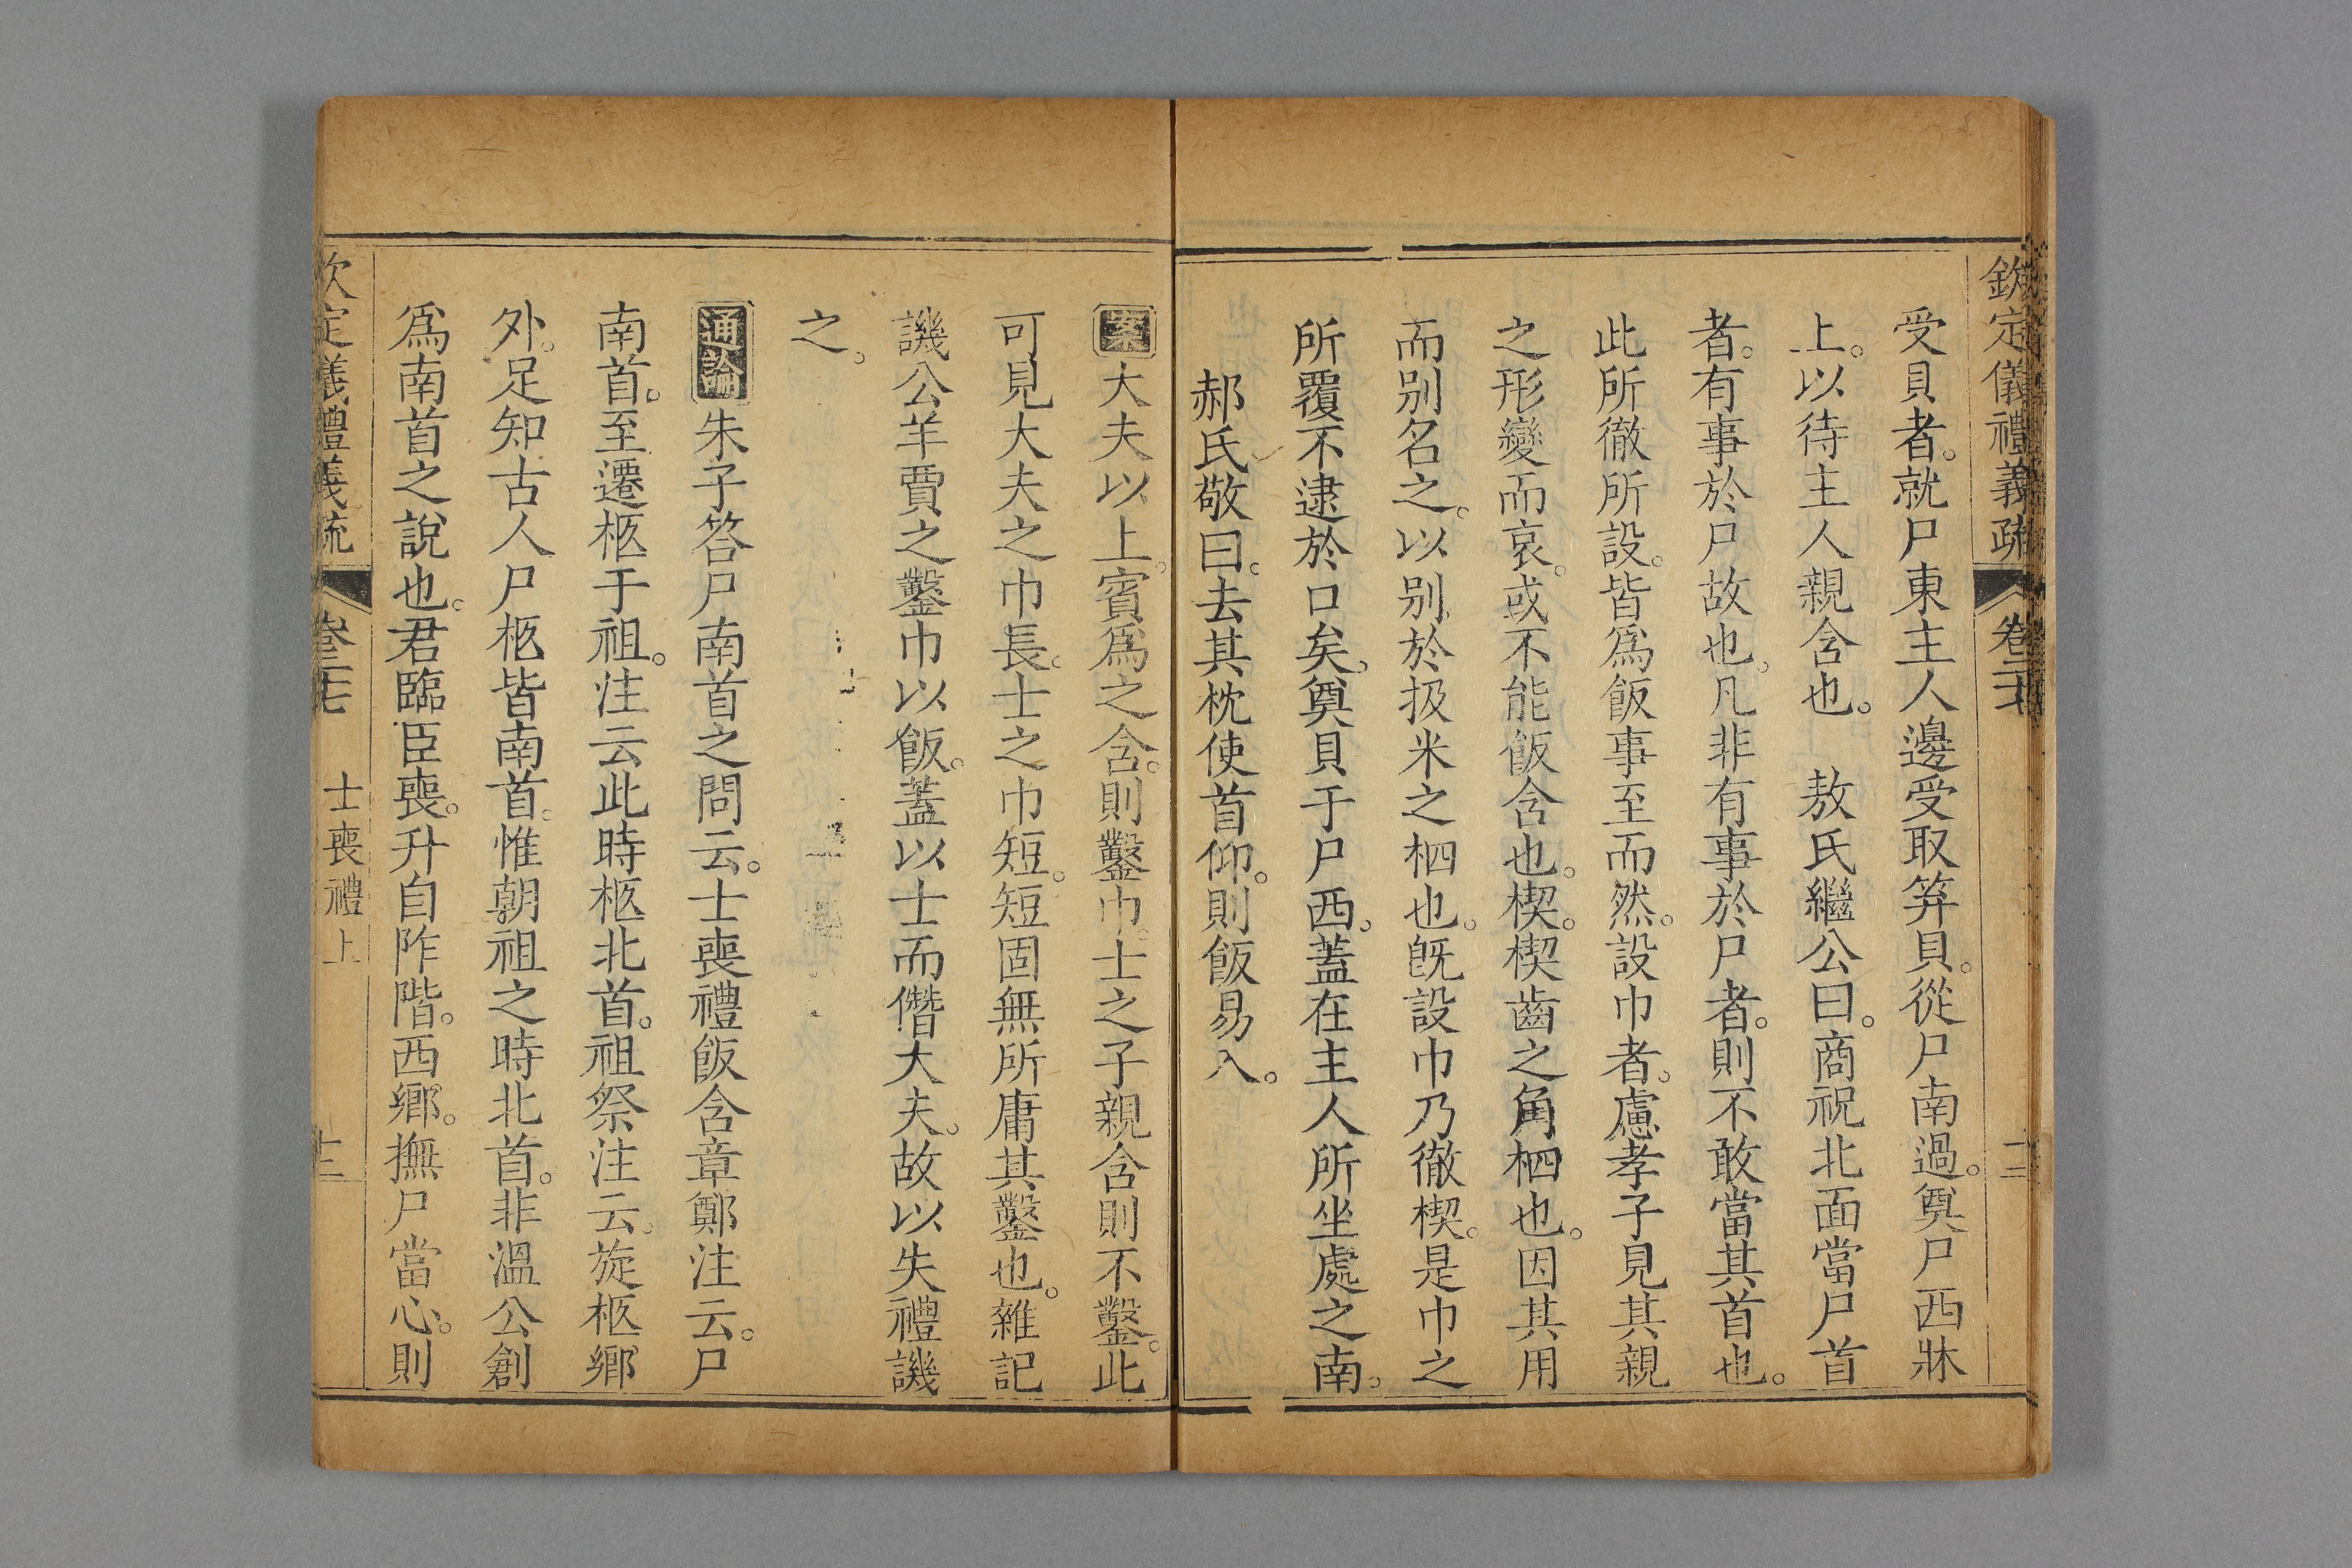 欽定儀禮義疏 卷二十七 十二
受貝者。就尸東主人邊受取笲貝。從尸南過。奠尸西牀
上。以待主人親含也。 敖氏繼公曰。商祝北面當尸首
者。有事於尸故也。凡非有事於尸者。則不敢當其首也。
此所徹所設。皆爲飯事至而然。設巾者。慮孝子見其親
之形變而哀。或不能飯含也。楔。楔齒之角柶也。因其用
而別名之。以別於扱米之柶也。旣設巾乃徹楔。是巾之
所覆不逮於口矣。奠貝于尸西。蓋在主人所坐處之南。
郝氏敬曰。去其枕使首仰。則飯易入。
案大夫以上。賓爲之含。則鑿巾。士之子親含則不鑿。此
可見大夫之巾長。士之巾短。短固無所庸其鑿也。雜記
譏公羊賈之鑿巾以飯。蓋以士而僭大夫。故以失禮譏
之。
通論朱子答尸南首之問云。士喪禮飯含章鄭注云。尸
南首。至遷柩于祖。注云此時柩北首。祖祭注云。旋柩鄉
外。足知古人尸柩皆南首。惟朝祖之時北首。非溫公創
爲南首之說也。君臨臣喪。升自阼階。西鄉。撫尸當心。則
欽定儀禮義疏 卷二十七 士喪禮上 十二